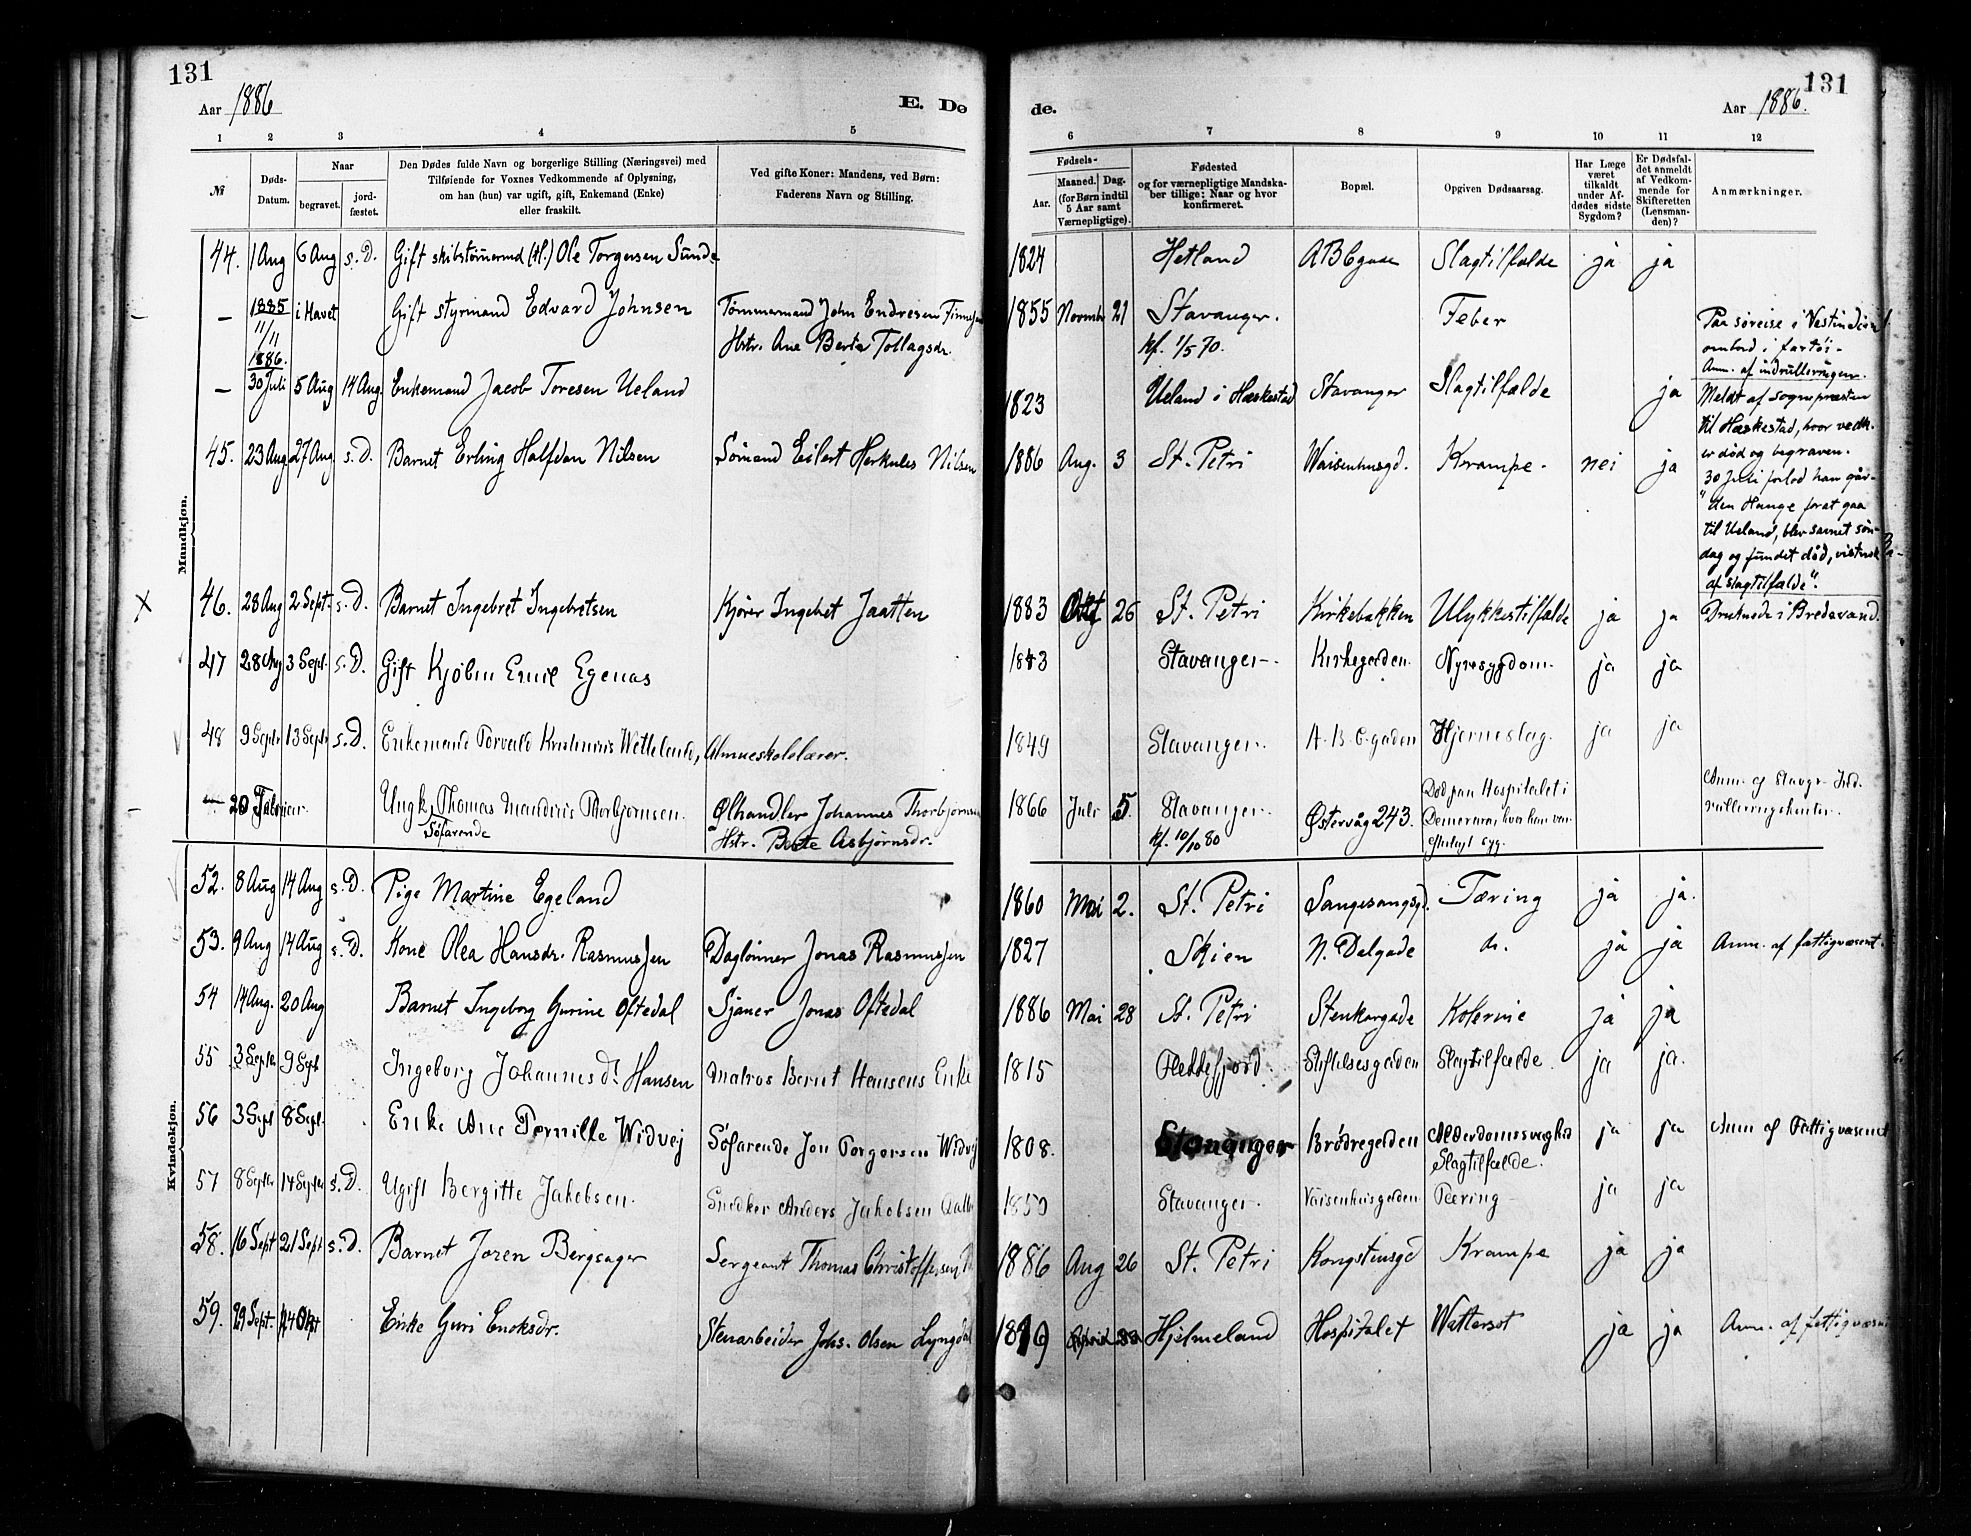 131
Aar 1886
E. Dø
de.
131
Aar 1886.
1 2 3 4 5 6 7 8 9 10 11 12
№
Døds-
Datum.
Naar
begravet.
jord-
fæstet.
Den Dødes fulde Navn og borgerlige Stilling (Næringsvei) med
Tilføiende for Voxnes Vedkommende af Oplysning,
om han (hun) var ugift, gift, Enkemand (Enke)
eller fraskilt.
Ved gifte Koner: Mandens, ved Børn:
Faderens Navn og Stilling.
Fødsels-
Aar.
Maaned. Dag.
(for Børn indtil
5 Aar samt
Værnepligtige).
Fødested
og for værnepligtige Mandska-
ber tillige: Naar og hvor
konfirmeret.
Bopæl.
Opgiven Dødsaarsag.
Har Læge
været
tilkaldt
under Af-
dødes sidste
Sygdom?
Er Dødsfal-
det anmeldt
af Vedkom-
mende for
Skifteretten
(Lensman-
den)?
Anmærkninger.
Mandkjøn.
44. 1 Aug 6 Aug s.D. Gift skibstømmermd (tl.) Ole Torgersen Sunde 1824 Hetland ABCgade Slagtilfælde ja ja
— 1885 11/11 i Havet Gift styrmand Edvard Johnsen Tømmermand John Endresen
Hstr. Ane Berta Tollagsdr. 1855 Novmbr 21 Stavanger.
kf. 1/5 70. Feber Paa søreise i Vestindien
ombord i fartøi.
Anm. af indrulleringen.
— 1886. 30 Juli 5 Aug 14 Aug. Enkemand Jacob Toresen Ueland 1823 Ueland i Hæskestad Stavanger Slagtilfælde ja Meldt af Sognepræsten
til Hæskestad, hvor vedk.
er død og begraven.
30 Juli forlod han går-
"den Hauge forat gaa
til Ueland, blev savnet søn-
dag og fundet død, vistnok
af slagtilfælde".
45. 23 Aug. 27 Aug s.D. Barnet Erling Halfdan Nilsen Sømand Eilert Herkules Nilsen 1886 Aug. 3 St. Petri Waisenhusgd. Krampe. nei ja
46. 28 Aug 2 Sept. s.D. Barnet Ingebret Ingebretsen Kjører Ingebret Jaatten 1883 Okt 26 St. Petri Kirkebakken Ulykkestilfælde ja ja Druknede i Bredevand.
47 28 Aug 3 Sept. s.D. Gift Kjøbm Emil Egenæs 1843 Stavanger. Kirkegaden. Nyresygdom. ja ja
48 9 Septr 13 Septr s.D. Enkemand Torvald Wetteland, Almueskolelærer. 1849 Stavanger. A-B-C-gaden Hjerneslag. ja ja
— 20 Februar. Ungk. Thomas Mandius Thorbjørnsen.
Søfarende Ølhandler Johannes Thorbjørnsen
Hstr. Berte Asbjørnsdr. 1866 Juli 5. Stavanger.
kf. 10/10 80 Østervåg 243. Død paa Hospitalet i
Demerara, hvor han var
efterlagt syg. Anm. af Stavgr. Ind-
rulleringskontor.
Kvindekjøn.
52. 8 Aug 14 Aug s.D. Pige Martine Egeland 1860 Mai 2. St. Petri Sangesangsgd. Tæring ja ja.
53. 9 Aug 14 Aug s.D. Kone Olea Hansdr. Rasmussen Daglønner Jonas Rasmussen 1827 Skien N. Dalgade do. ja ja Anm. af fattigvæsent.
54 14 Aug. 20 Aug Barnet Ingeborg Gurine Oftedal Sjauer Jonas Oftedal 1886 Mai 28 St. Petri Stenkargade Kolerine ja ja
55 3 Septr 9 Sept Ingeborg Johannesd. Hansen Matros Bernt Hansens Enke 1815 Flekkefjord. Stiftelsesgaden Slagtilfælde. ja ja.
56 3 Sept 8 Sept. Enke Ane Pernille Widvej Søfarende Jon Torgersen Widvej 1808. Stavanger Brødregaden Alderdomssvaghed
Slagtilfælde. ja ja Anm af Fattigvæsenet
57 8 Septbr 14 Septbr s.D. Ugift Bergitte Jakobsen. Snedker Anders Jakobsen 1850 Stavanger. Vaisenhusgaden Tæring ja ja
58. 16 Sept 21 Sept s.D. Barnet Joren Bergsager Sergeant Thomas Christoffersen 1886 Aug 26 St. Petri Kongstensgd Krampe ja ja
59. 29 Sept. 4 Okt Enke Guri Enoksdr. Stenarbeider Johs. Olsen Lyngdal 1819 Hjelmeland Hospitalet Wattersot ja ja Anm. af fattigvæsen